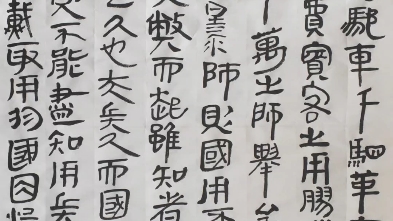 馳車千駟革
費賓客之用膠
十萬之師舉
暴師則國用不
弊而起雖知者
之久也夫兵久而國
不能盡知用兵
載取用於國因